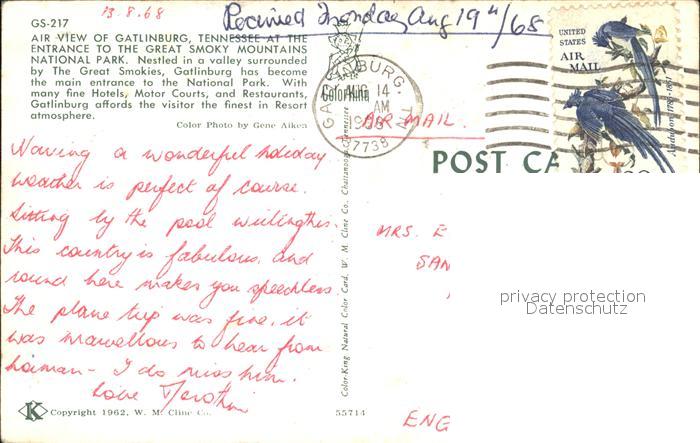 13.8.68
Received Monday Aug 19th/68
GS-217
AIR VIEW OF GATLINBURG, TENNESSEE AT THE
ENTRANCE TO THE GREAT SMOKY MOUNTAINS
NATIONAL PARK. Nestled in a valley surrounded
by The Great Smokies, Gatlinburg has become
the main entrance to the National Park. With
many fine Hotels, Motor Courts, and Restaurants,
Gatlinburg affords the visitor the finest in Resort
atmosphere.
Color Photo by Gene Aiken
Having a wonderful holiday
weather is perfect of course.
Sitting by the pool writing this.
This country is fabulous, and
round here makes you speechless
The plane trip was fine, it
was marvellous to hear from
I do miss him.
Love
K Copyright 1962, W. M. Cline Co.
55714
Color-King Natural Color Card, W. M. Cline Co., Chattanooga, Tennessee
ColorKing
GATLINBURG, TN
AUG 14
AM
1968
37738
UNITED
STATES
AIR
MAIL
Audubon 1785-1851
AIR MAIL.
POST CA
MRS. E
SAN
ENG
privacy protection
Datenschutz